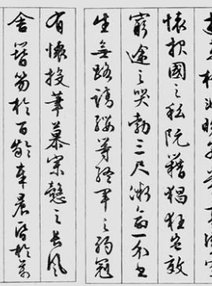 懷報國之私阮籍猖狂豈效
窮途之哭勃三尺微命一介書
生無路請纓等終軍之弱冠
有懷投筆慕宗愨之長風
舍簪笏於百齡奉晨昏於萬